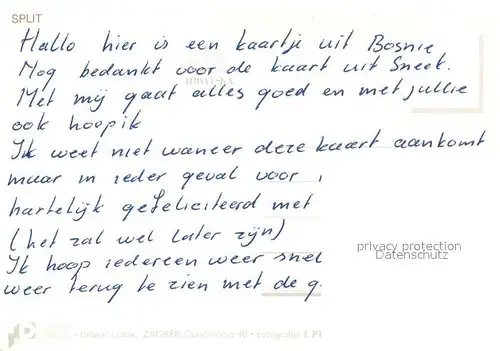 SPLIT
Hallo hier is een kaartje uit Bosnie
Nog bedankt voor de kaart uit Sneek.
HRVATSKA
Met mij gaat alles goed en met jullie
ook hoop ik
Ik weet niet waneer deze kaart aankomt
maar in ieder geval voor
hartelijk gefeliciteerd met
(het zal wel later zijn)
privacy protection
Datenschutz
Ik hoop iedereen weer snel
weer terug te zien met de g.
ZAGREB